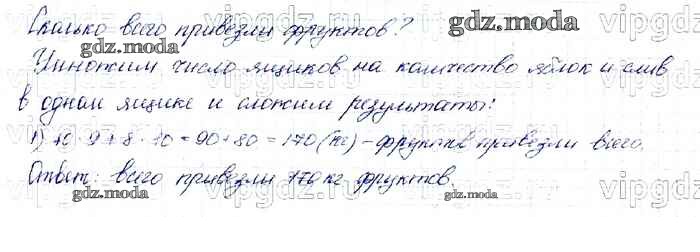 Сколько всего привезли фруктов?
Умножим число ящиков на количество яблок и слив
в одном ящике и сложим результаты:
1) 10 · 9 + 8 · 10 = 90 + 80 = 170 (кг) – фруктов привезли всего.
Ответ: всего привезли 170 кг фруктов.
gdz.moda
gdz.moda
gdz.moda
gdz.moda
vipgdz
vipgdz
vipgdz